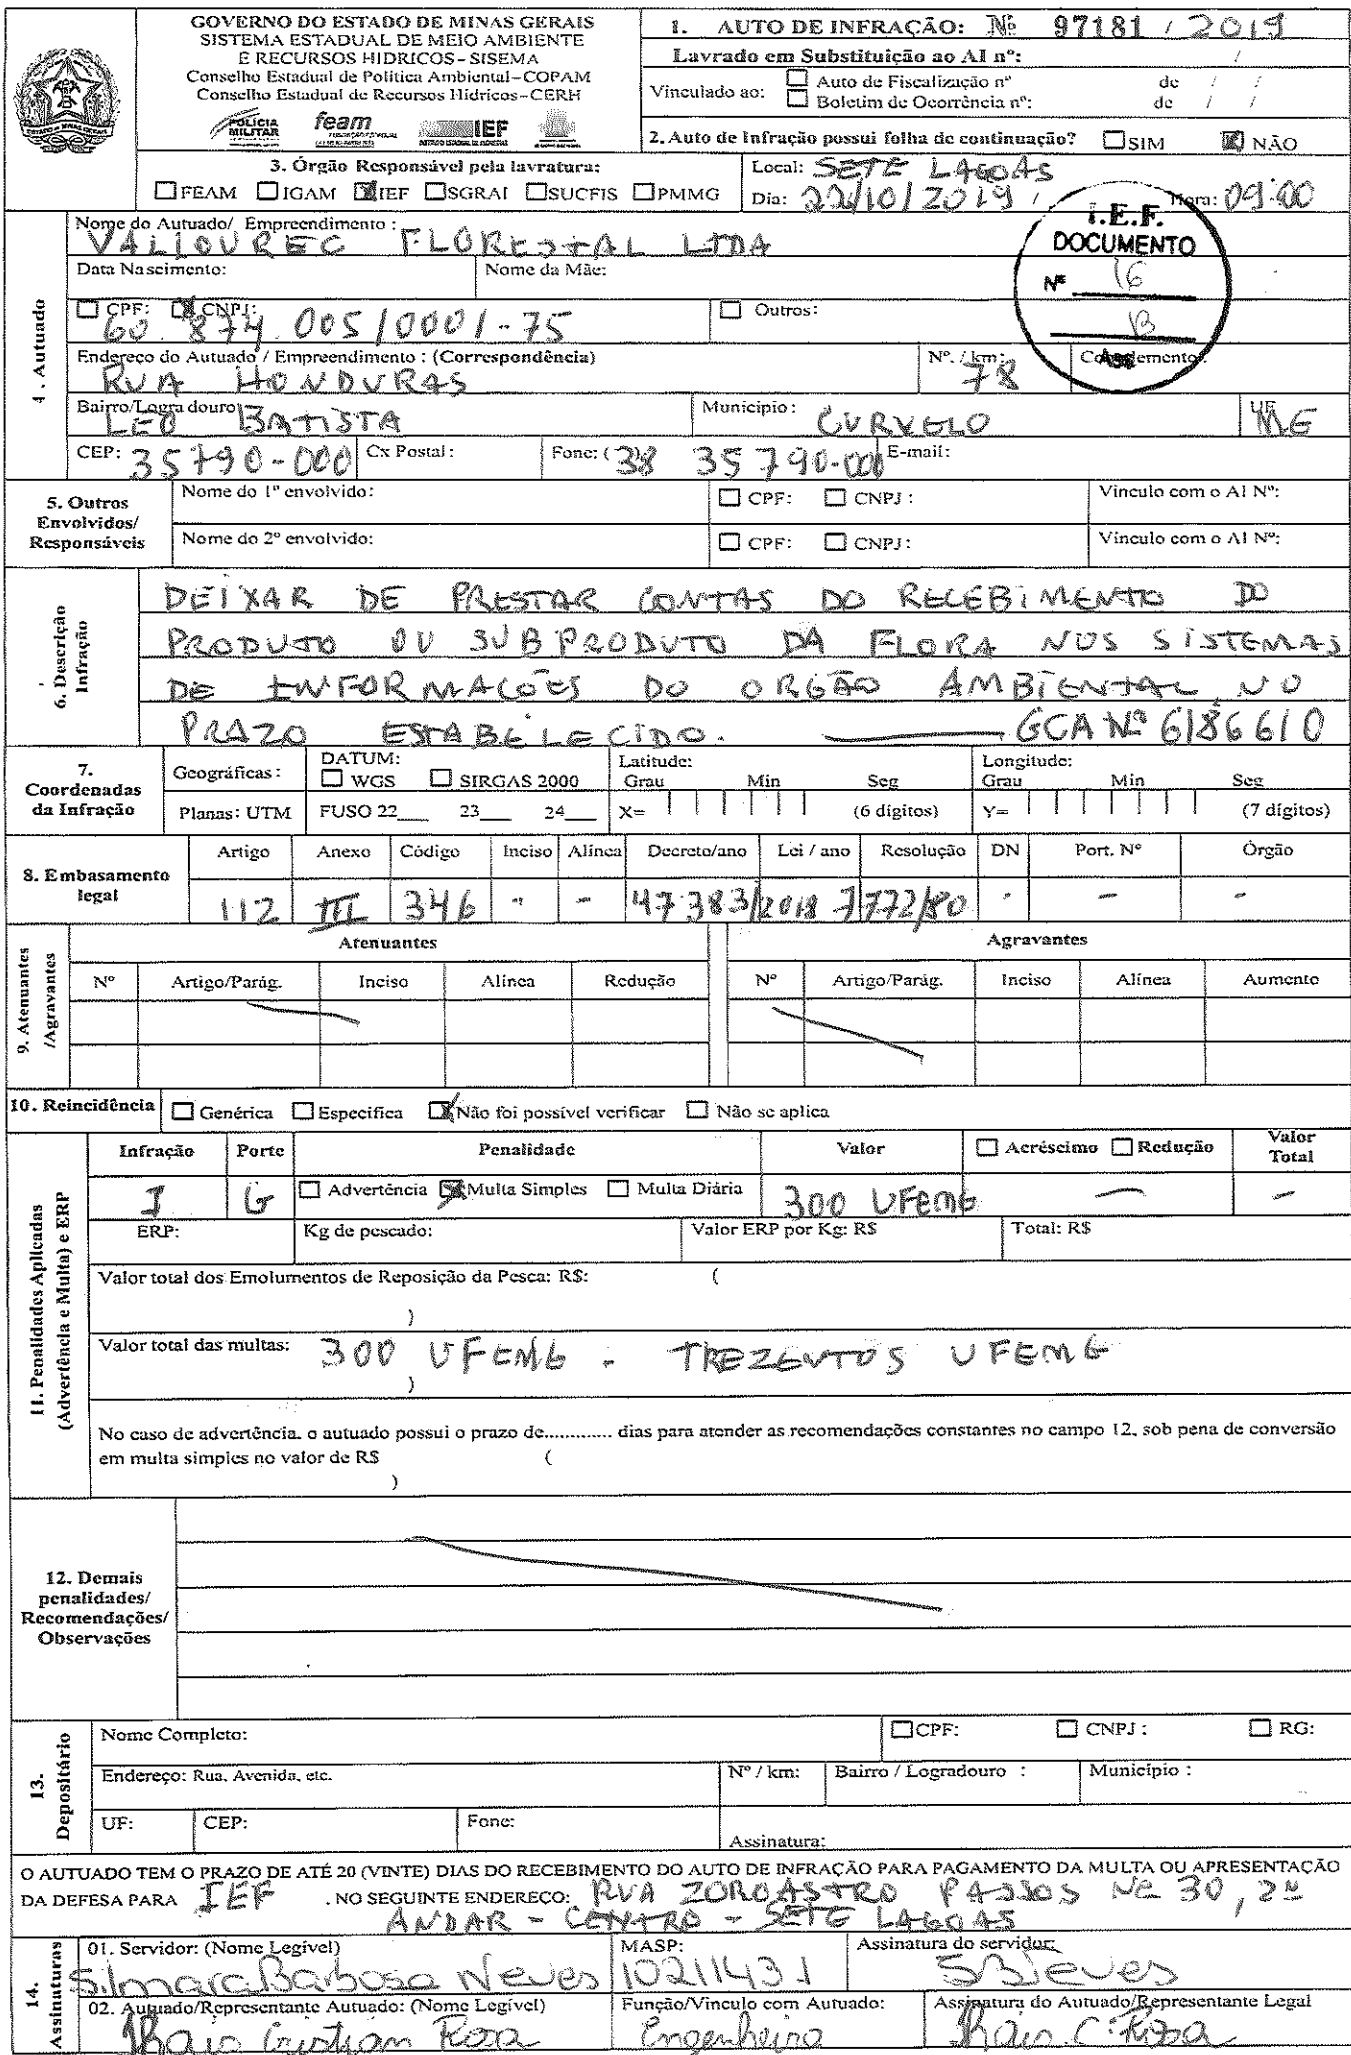 GOVERNO DO ESTADO DE MINAS GERAIS
SISTEMA ESTADUAL DE MEIO AMBIENTE
E RECURSOS HIDRICOS - SISEMA
Conselho Estadual de Política Ambiental - COPAM
Conselho Estadual de Recursos Hídricos - CERH
POLÍCIA MILITAR feam IEF
1. AUTO DE INFRAÇÃO: Nº 97181 / 2019
Lavrado em Substituição ao AI nº: /
Vinculado ao: ☐ Auto de Fiscalização nº de / /
☐ Boletim de Ocorrência nº: de / /
2. Auto de Infração possui folha de continuação? ☐ SIM ☒ NÃO
3. Órgão Responsável pela lavratura:
☐ FEAM ☐ IGAM ☒ IEF ☐ SGRAI ☐ SUCFIS ☐ PMMG
Local: SETE LAGOAS
Dia: 22/10/2019 Hora: 09:00
I.E.F.
DOCUMENTO
Nº 16
4. Autuado
Nome do Autuado/ Empreendimento:
VALLOUREC FLORESTAL LTDA
Data Nascimento: Nome da Mãe:
☐ CPF: ☒ CNPJ: ☐ Outros:
60.874.005/0001-75
Endereço do Autuado / Empreendimento : (Correspondência) Nº. / km: Complemento:
RUA HONDURAS 78
Bairro/Logradouro: Município: UF
LEO BATISTA CURVELO MG
CEP: 35790-000 Cx Postal: Fone: (38 35790-000 E-mail:
5. Outros Envolvidos/ Responsáveis
Nome do 1º envolvido: ☐ CPF: ☐ CNPJ: Vinculo com o AI Nº:
Nome do 2º envolvido: ☐ CPF: ☐ CNPJ: Vinculo com o AI Nº:
6. Descrição Infração
DEIXAR DE PRESTAR CONTAS DO RECEBIMENTO DO
PRODUTO OU SUBPRODUTO DA FLORA NOS SISTEMAS
DE INFORMAÇÕES DO ORGÃO AMBIENTAL NO
PRAZO ESTABELECIDO. GCA Nº 6186610
7. Coordenadas da Infração
Geográficas: DATUM: ☐ WGS ☐ SIRGAS 2000 Latitude: Grau Min Seg Longitude: Grau Min Seg
Planas: UTM FUSO 22 23 24 X= (6 dígitos) Y= (7 dígitos)
8. Embasamento legal
Artigo Anexo Código Inciso Alínea Decreto/ano Lei / ano Resolução DN Port. Nº Órgão
112 III 346 - - 47.383/2018 7772/80 - - -
9. Atenuantes /Agravantes
Atenuantes Agravantes
Nº Artigo/Parág. Inciso Alínea Redução Nº Artigo/Parág. Inciso Alínea Aumento
10. Reincidência ☐ Genérica ☐ Específica ☒ Não foi possível verificar ☐ Não se aplica
11. Penalidades Aplicadas (Advertência e Multa) e ERP
Infração Porte Penalidade Valor ☐ Acréscimo ☐ Redução Valor Total
I G ☐ Advertência ☒ Multa Simples ☐ Multa Diária 300 UFEMG — -
ERP: Kg de pescado: Valor ERP por Kg: R$ Total: R$
Valor total dos Emolumentos de Reposição da Pesca: R$: (
)
Valor total das multas: 300 UFEMG - TREZENTOS UFEMG
)
No caso de advertência, o autuado possui o prazo de............. dias para atender as recomendações constantes no campo 12, sob pena de conversão
em multa simples no valor de R$ (
)
12. Demais penalidades/ Recomendações/ Observações
13. Depositário
Nome Completo: ☐ CPF: ☐ CNPJ: ☐ RG:
Endereço: Rua, Avenida, etc. Nº / km: Bairro / Logradouro : Município :
UF: CEP: Fone: Assinatura:
O AUTUADO TEM O PRAZO DE ATÉ 20 (VINTE) DIAS DO RECEBIMENTO DO AUTO DE INFRAÇÃO PARA PAGAMENTO DA MULTA OU APRESENTAÇÃO
DA DEFESA PARA IEF . NO SEGUINTE ENDEREÇO: RUA ZOROASTRO PASSOS Nº 30, 2º
ANDAR - CENTRO - SETE LAGOAS
14. Assinaturas
01. Servidor: (Nome Legível) MASP: Assinatura do servidor:
Silmara Barbosa Neves 10211431 SBNeves
02. Autuado/Representante Autuado: (Nome Legível) Função/Vinculo com Autuado: Assinatura do Autuado/Representante Legal
Thaís Cristian Rosa Engenheira Thaís C. Rosa